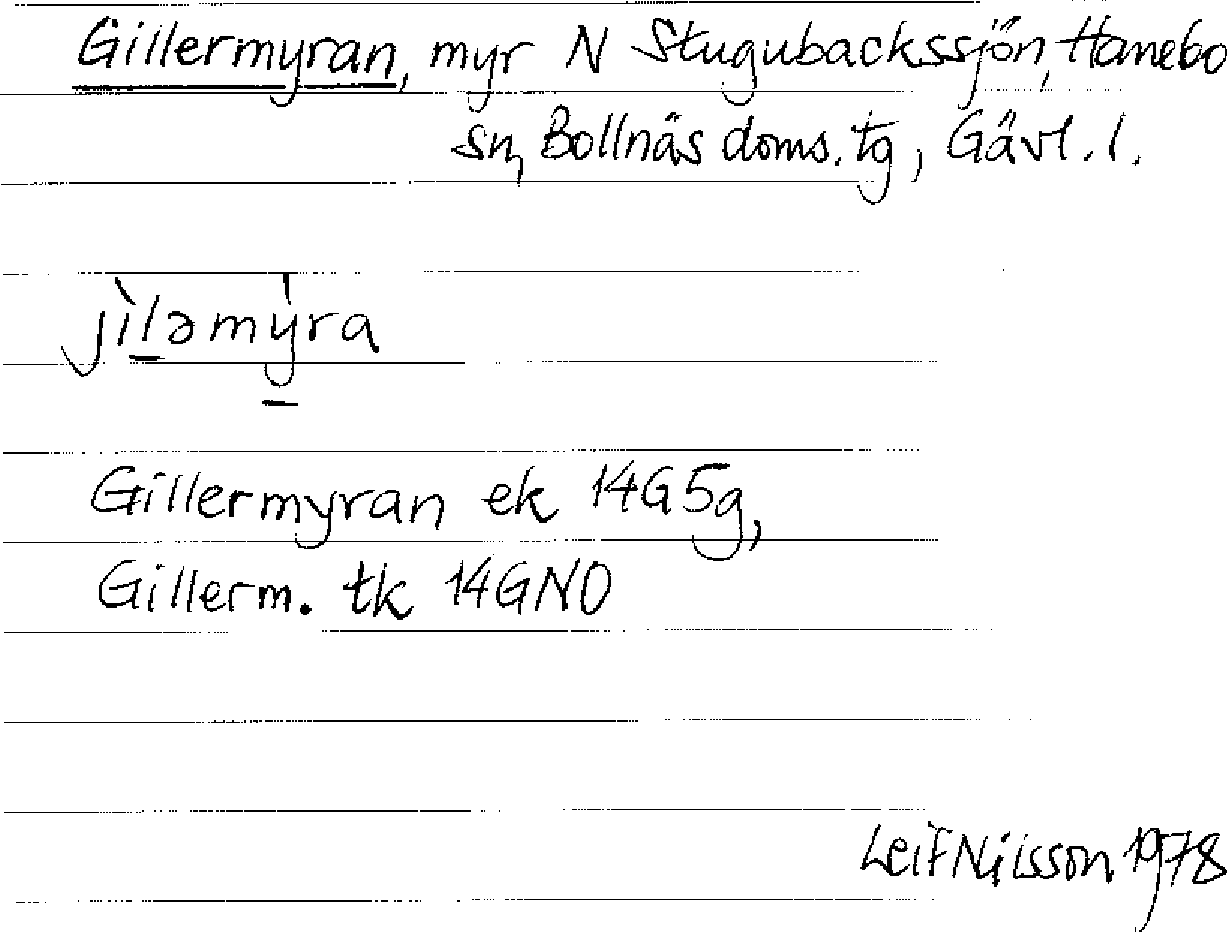 Gillermyran, myr N Stugubackssjön, Hanebo
sn, Bollnäs doms. tg, Gävl. l.
jìl̲əmy̲̍ra
Gillermyran ek 14G5g,
Gillerm. tk 14GNO
Leif Nilsson 1978